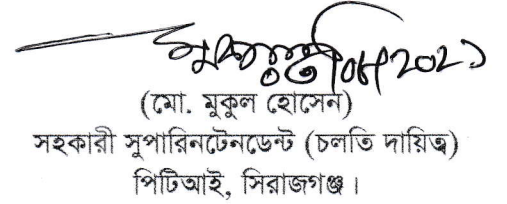 (মো. মুকুল হোসেন)
সহকারী সুপারিনটেনডেন্ট (চলতি দায়িত্ব)
পিটিআই, সিরাজগঞ্জ।